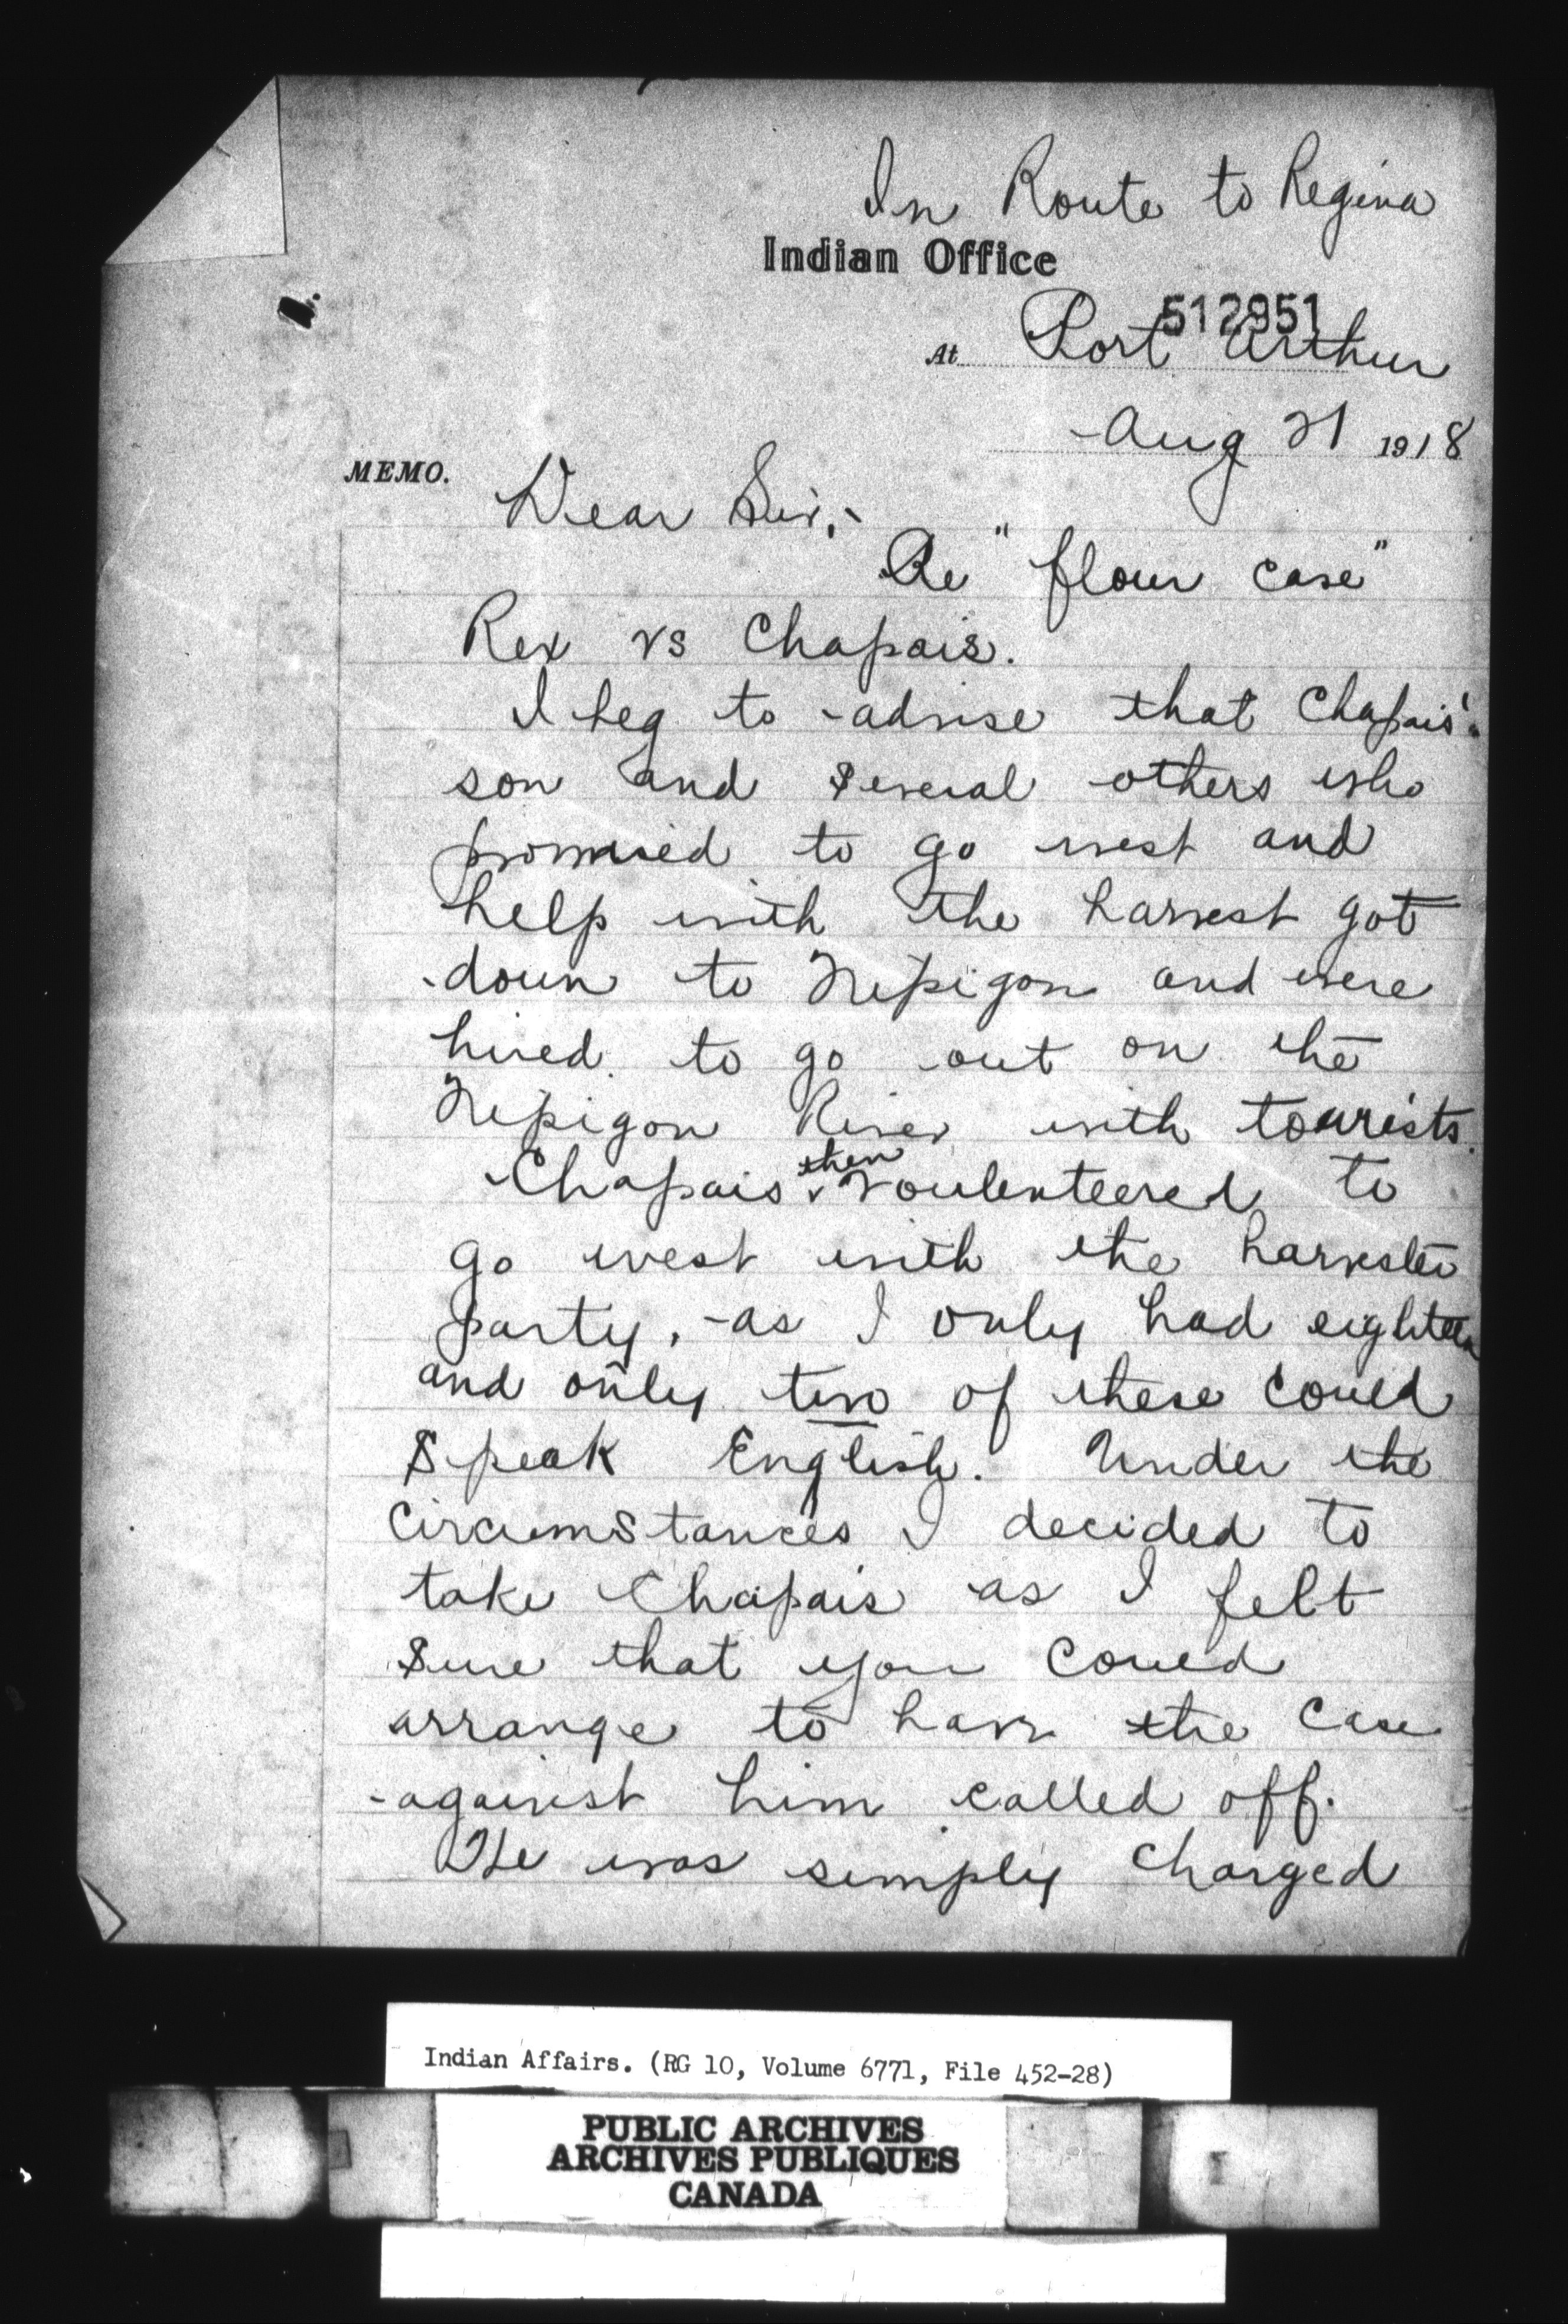 In Route to Regina
Indian Office
512951
At Port Arthur
Aug 21 1918
MEMO.
Dear Sir,-
Re "flour case"
Rex vs Chapais.
I beg to advise that Chapais'
son and several others who
promised to go west and
help with the harvest got
down to Nipigon and were
hired to go out on the
Nipigon River with tourists.
Chapais then voulenteered to
go west with the harvester
party, as I only had eighteen
and only two of these could
speak English. Under the
circumstances I decided to
take Chapais as I felt
sure that you could
arrange to have the case
against him called off.
He was simply charged
Indian Affairs. (RG 10, Volume 6771, File 452-28)
PUBLIC ARCHIVES
ARCHIVES PUBLIQUES
CANADA